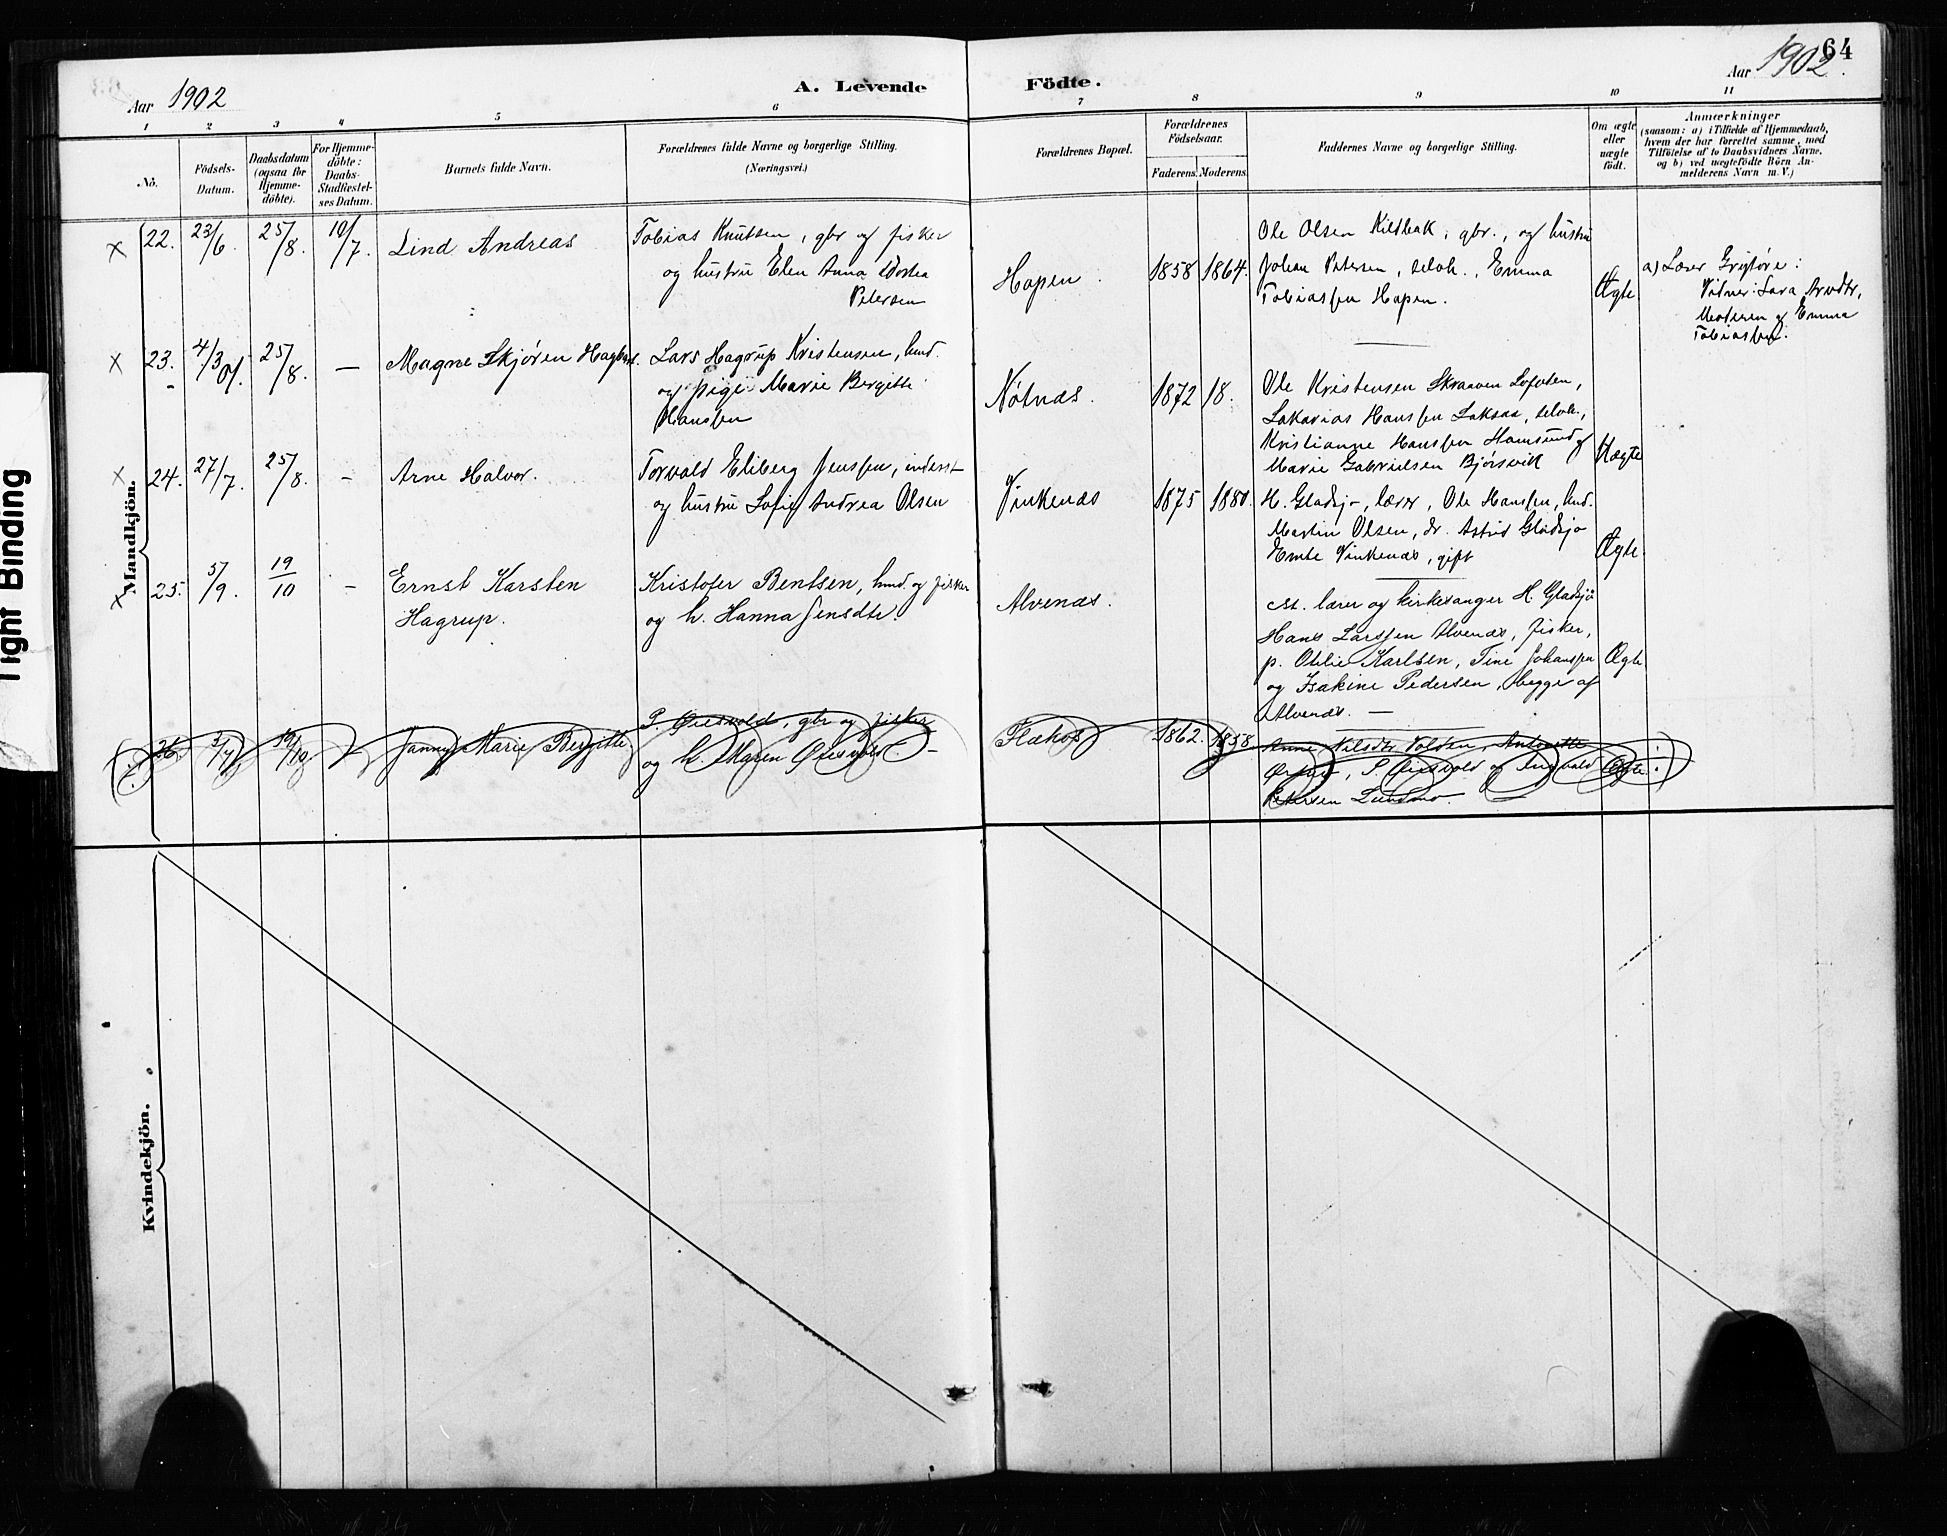 64
Aar 1902
A. Levende Födte.
Aar 1902.
1 2 3 4 5 6 7 8 9 10 11
No.
Födsels-
Datum.
Daabsdatum
(ogsaa for
Hjemme-
döbte).
For Hjemme-
döbte:
Daabs-
Stadfæstel-
ses Datum.
Barnets fulde Navn.
Forældrenes fulde Navne og borgerlige Stilling.
(Næringsvei.)
Forældrenes Bopæl.
Forældrenes
Födselsaar.
Faderens. Moderens.
Faddernes Navne og borgerlige Stilling.
Om ægte
eller
uægte
født.
Anmærkninger
(saasom: a) i Tilfælde af Hjemmedaab,
hvem der har forrettet samme, med
Tilföielse af to Daabsvidners Navne,
og b) ved uægtefödte Börn An-
melderens Navn m. V.)
Mandkjön.
22. 23/6. 25/8. 10/7. Lind Andreas
Tobias Knutsen, gbr og fisker
og hustru Elen Anna Dortea
Petersen
Hopen.
1858 1864.
Ole Olsen Kildbak, gbr., og hustru
Johan Petersen, selvh., Emma
Tobiassen Hopen.
Ægte
a) Lærer Grytøre:
Vidner: Lava Arndtr,
Moderen og Emma
Tobiassen.
23. 4/3 01. 25/8. — Magne Skjøren Hagbart.
Lars Hagrup Kristensen, hmd.
og pige Marie Bergitte
Hanssen
Nøtnæs.
1872 18.
Ole Kristensen Skraaven Lofoten,
Sakarias Hanssen Laksaa, selvh.,
Kristianne Hanssen Hamsund og
Marie Gabrielsen Bjørsvik
Uægte
24. 27/7. 25/8. - Arne Halvor.
Torvald Eliberg Jenssen, inderst
og hustru Sofie Andrea Olsen
Vinkenæs
1875 1880.
H. Gladsjø, lærer, Ole Hanssen, hmd.
Martin Olsen, dr. Astrid Gladsjø
Emte Vinkenæs, gift
Ægte.
25. 5/9. 19/10 - Ernst Karsten
Hagrup.
Kristofer Bentsen, hmd. og fisker
og h. Hanna Jensdtr.
Alvenæs.
st. lærer og kirkesanger H. Gladsjø
Hans Larssen Alvenæs, fisker,
p. Otilie Karlsen, Tine Johanssen
og Isakine Pedersen, begge af
Alvenæs. —
Ægte
26. 19/10 Janny Marie Bergitte
P. Øiesvold, gbr og fisker
og h. Maren Øiesvold -
Flakop
1862. 1858
Anne Nilsdtr Volden, Antonette
P. Øiesvold og Ingvald
Petersen Lundmo.
Ægte
Kvindekjön.
Tight Binding